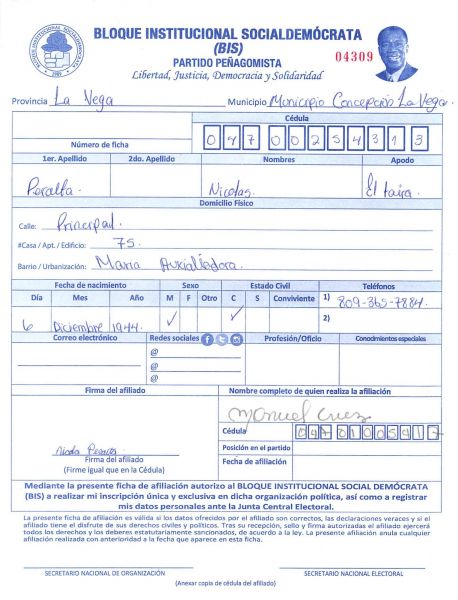 BLOQUE INSTITUCIONAL SOCIALDEMÓCRATA
(BIS)
PARTIDO PEÑAGOMISTA
Libertad, Justicia, Democracia y Solidaridad
04309
Provincia La Vega Municipio Municipio Concepción La Vega.
Cédula
Número de ficha 047 0025431 3
1er. Apellido 2do. Apellido Nombres Apodo
Peralta. Nicolas. El taira.
Domicilio Físico
Calle: Principal.
#Casa / Apt. / Edificio: 75.
Barrio / Urbanización: Maria Auxialiedora.
Fecha de nacimiento Sexo Estado Civil Teléfonos
Día Mes Año M F Otro C S Conviviente 1) 809-365-7884.
6 Diciembre 1944. ✓ ✓ 2)
Correo electrónico Redes sociales Profesión/Oficio Conocimientos especiales
@
@
@
Firma del afiliado Nombre completo de quien realiza la afiliación
Manuel Cruz
Cédula 047 0100541 7
Posición en el partido
Nicola
Firma del afiliado Fecha de afiliación
(Firme igual que en la Cédula)
Mediante la presente ficha de afiliación autorizo al BLOQUE INSTITUCIONAL SOCIAL DEMÓCRATA
(BIS) a realizar mi inscripción única y exclusiva en dicha organización política, así como a registrar
mis datos personales ante la Junta Central Electoral.
La presente ficha de afiliación es válida si los datos ofrecidos por el afiliado son correctos, las declaraciones veraces y si el
afiliado tiene el disfrute de sus derechos civiles y políticos. Tras su recepción, sello y firma autorizada el afiliado ejercerá
todos los derechos y los deberes estatutariamente sancionados, de acuerdo a la ley. La presente afiliación anula cualquier
afiliación realizada con anterioridad a la fecha que aparece en esta ficha.
SECRETARIO NACIONAL DE ORGANIZACIÓN SECRETARIO NACIONAL ELECTORAL
(Anexar copia de cédula del afiliado)